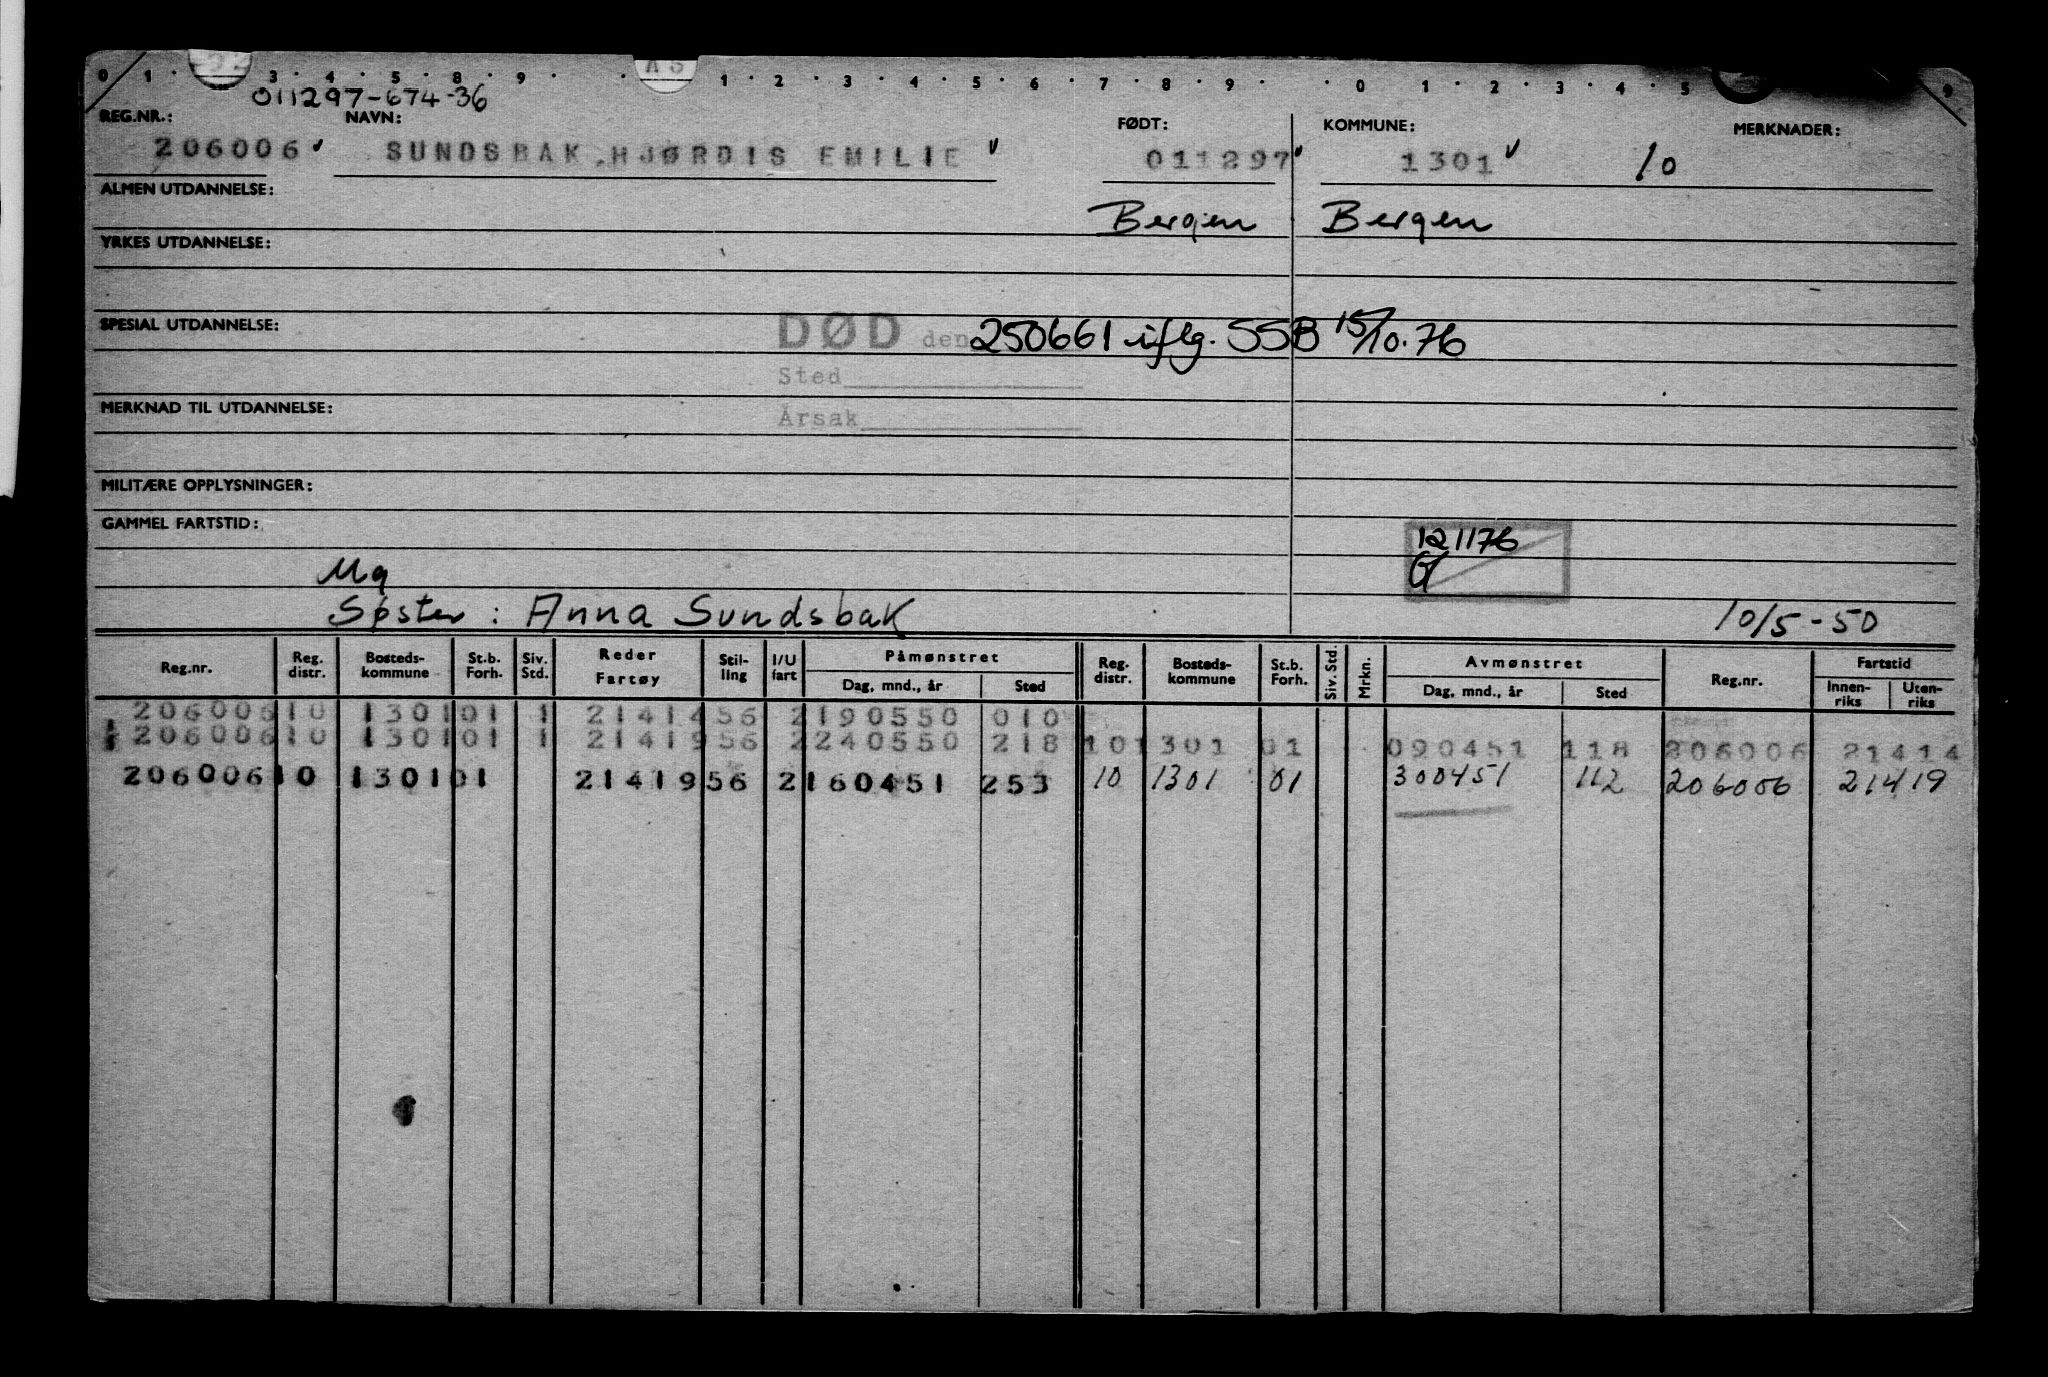 0 1 · 3 · 4 · 5 · 8 · 9 · · 1 · 2 · 3 · 4 · 5 · 6 · 7 · 8 · 9 · · 0 1 · 2 · 3 · 4 · 5 9
011297-674-36
REG.NR.: NAVN: FØDT: KOMMUNE: MERKNADER:
206006 SUNDSBAK, HJØRDIS EMILIE 011297 1301 10
ALMEN UTDANNELSE:
Bergen Bergen
YRKES UTDANNELSE:
SPESIAL UTDANNELSE: DØD den 250661 iflg. SSB 15/10.76
Sted
MERKNAD TIL UTDANNELSE:
Årsak
MILITÆRE OPPLYSNINGER:
GAMMEL FARTSTID:
121176
Søster: Anna Sundsbak 10/5-50
Reg.nr. Reg. distr. Bosteds-kommune St.b. Forh. Siv. Std. Reder Fartøy Stil-ling I/U fart Påmønstret Dag, mnd., år Sted Reg. distr. Bosteds-kommune St.b. Forh. Siv. Std. Mrkn. Avmønstret Dag, mnd., år Sted Reg.nr. Fartstid Innen-riks Uten-riks
206006 10 1301 01 1 21414 56 2 190550 010
206006 10 1301 01 1 21419 56 2 240550 218 10 1301 01 090451 118 206006 21414
206006 10 1301 01 21419 56 2 160451 253 10 1301 01 300451 112 206006 21419